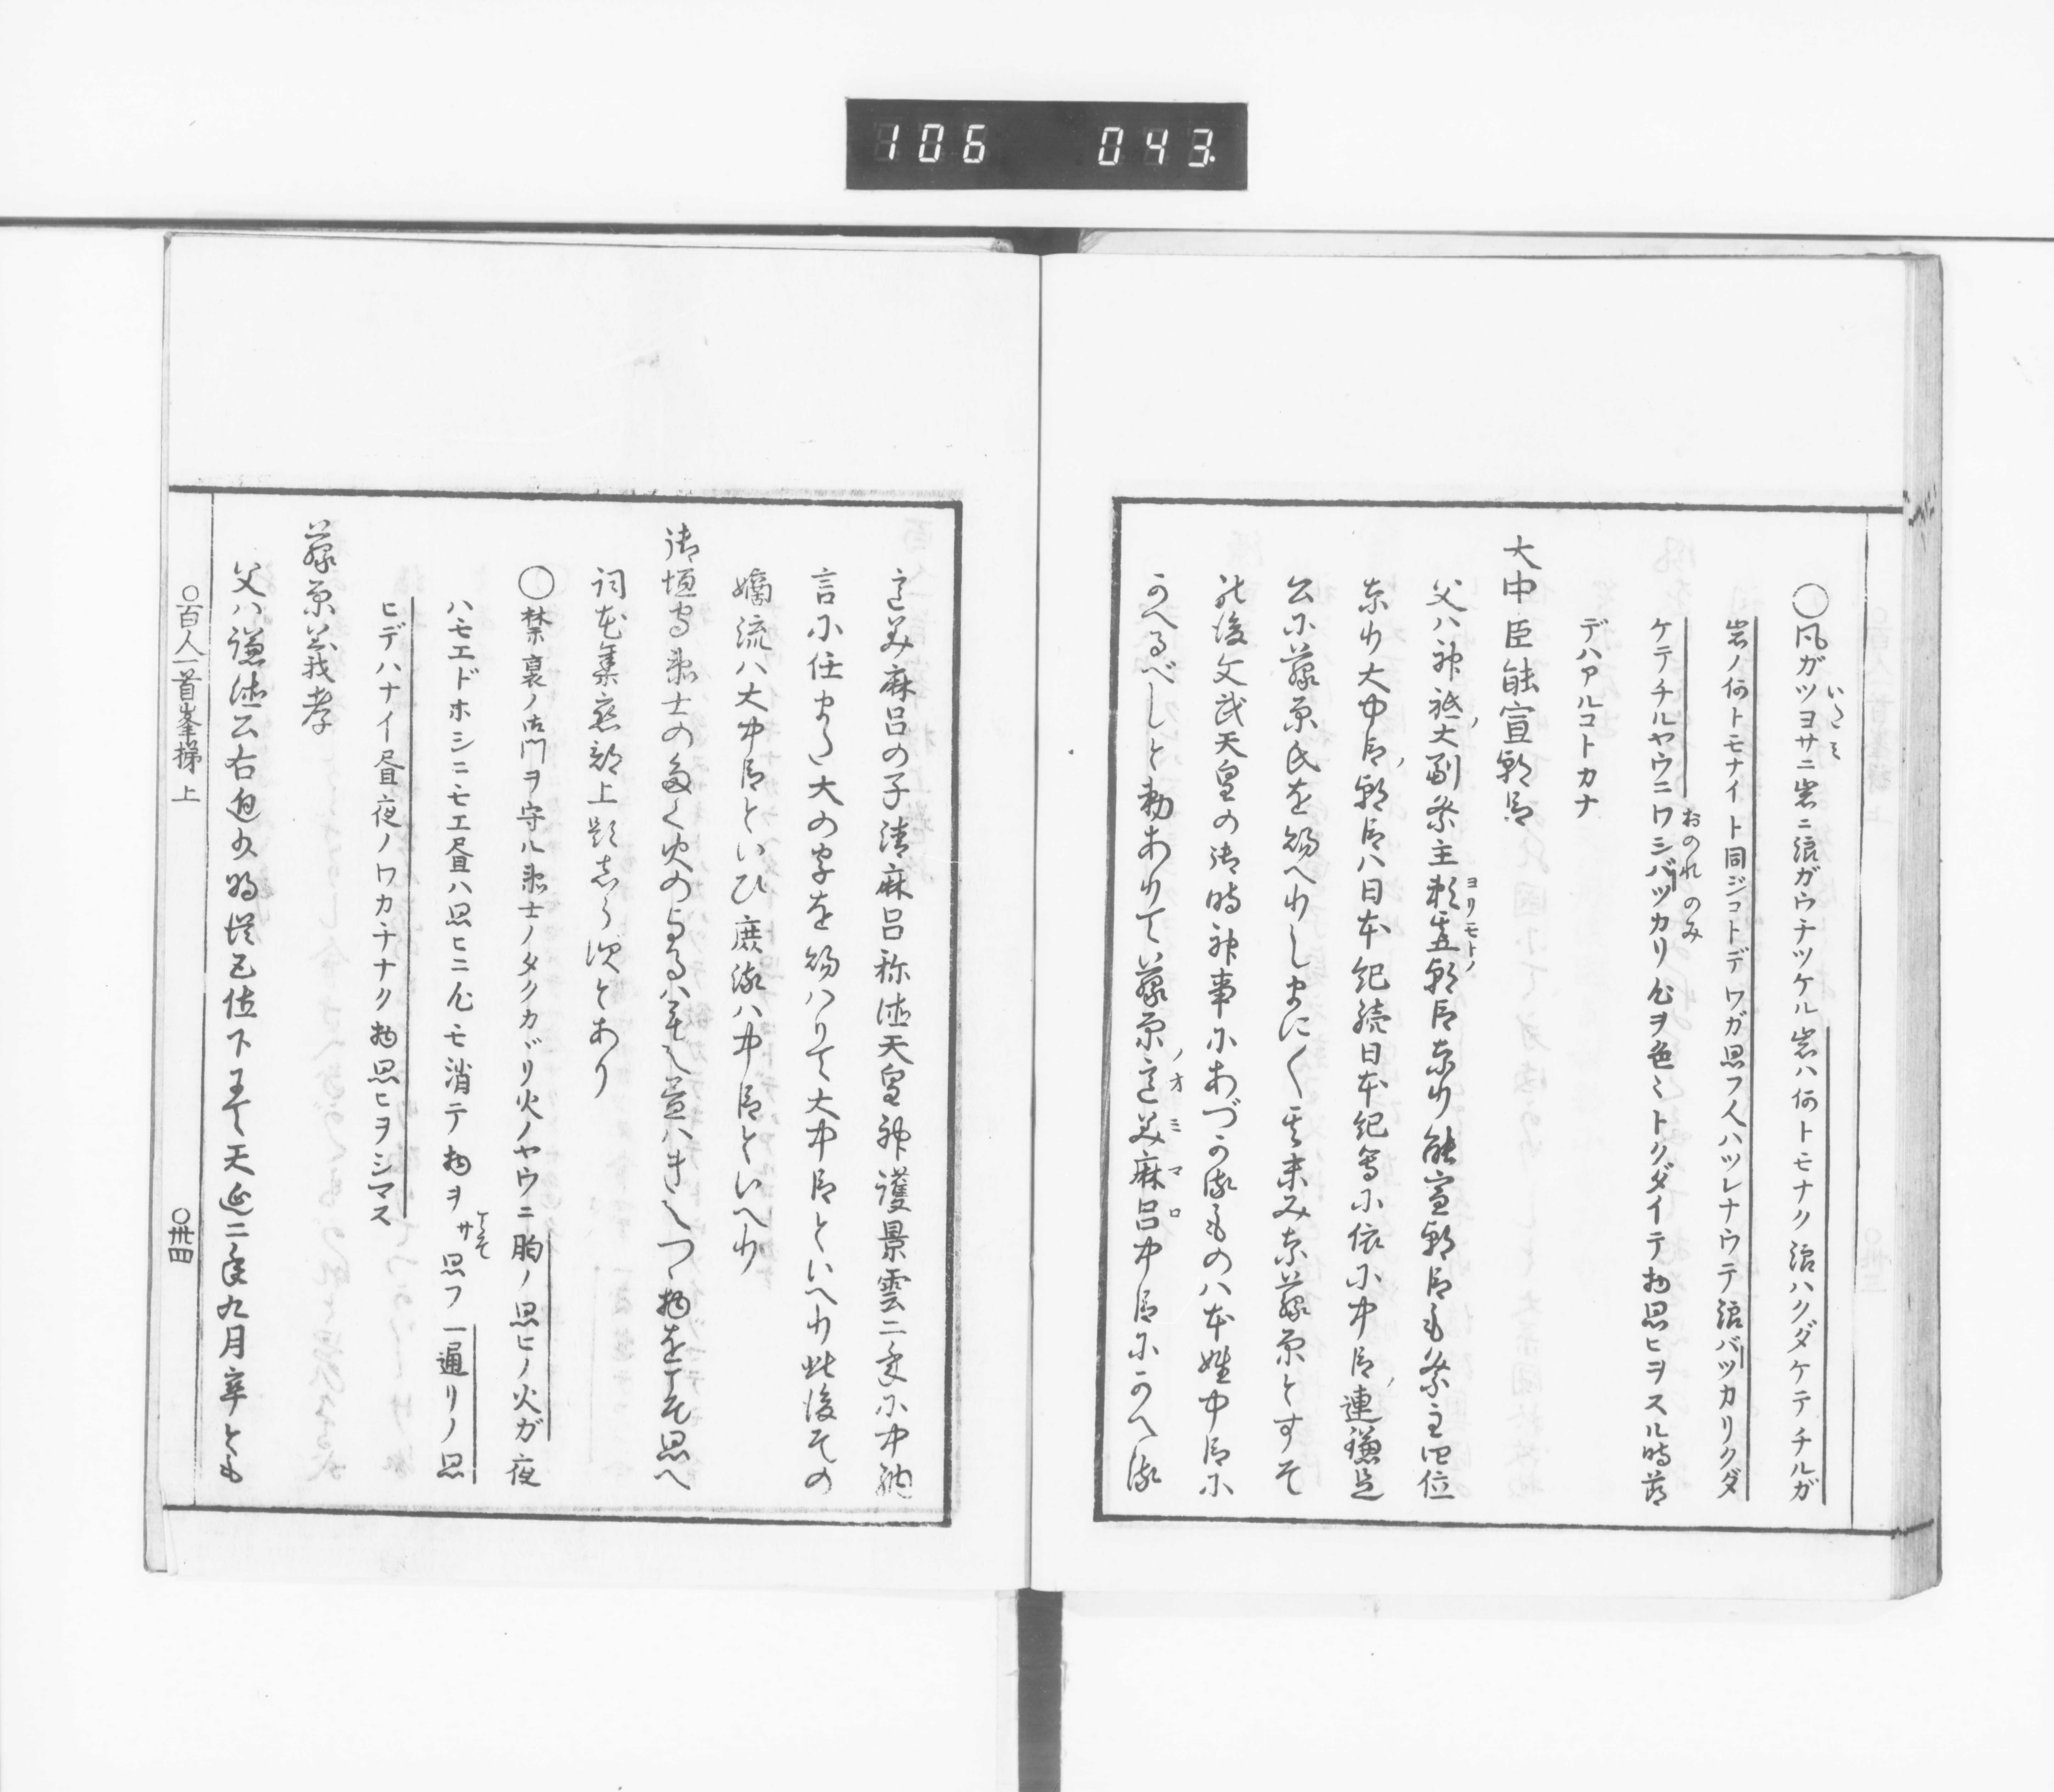 106 043
○風ガツヨサニ岩ニ浪ガウチツケル岩ハ何トモナク浪ハクダケテチルガ
いたミ
岩ノ何トモナイト同ジコトデワガ思フ人ハツレナウテ浪バツカリクダ
ケテチルヤウニワシバツカリ心ヲ色ミトクダイテ物思ヒヲスル時節
おのれのみ
デハアルコトカナ
大中臣能宣朝臣
父ハ神祇大副祭主頼基朝臣なり能宣朝臣も祭主四位
ノ ヨリモトノ
なり大中臣朝臣ハ日本紀続日本紀等に依に中臣連鎌足
公に藤原氏を賜へりしまに〱其末みな藤原とすそ
此後文武天皇の御時神事にあづかるものハ本姓中臣に
かへるべしと勅ありて藤原意美麻呂中臣にかへる
ノオミマロ
意美麻呂の子清麻呂称徳天皇神護景雲二年に中納
言に任また大の字を賜ハりて大中臣といへり此後その
嫡流ハ大中臣といひ庶流ハ中臣といへり
御垣守衛士のたく火の夜ハもえ昼ハきえつゝ物をこそ思へ
詞花集恋部上題しらずとあり
○禁裏ノ御門ヲ守ル衛士ノタクカヾリ火ノヤウニ胸ノ思ヒノ火ガ夜
ハモエドホシニモエ昼ハ思ヒニ心モ消テ物ヲサ思フ一通リノ思
こそ
ヒデハナイ昼夜ノワカチナク物思ヒヲシマス
藤原義孝
父ハ謙徳公右近少将従五位下にて天延二年九月卒とも
○百人一首峯梯 上 ○卅四